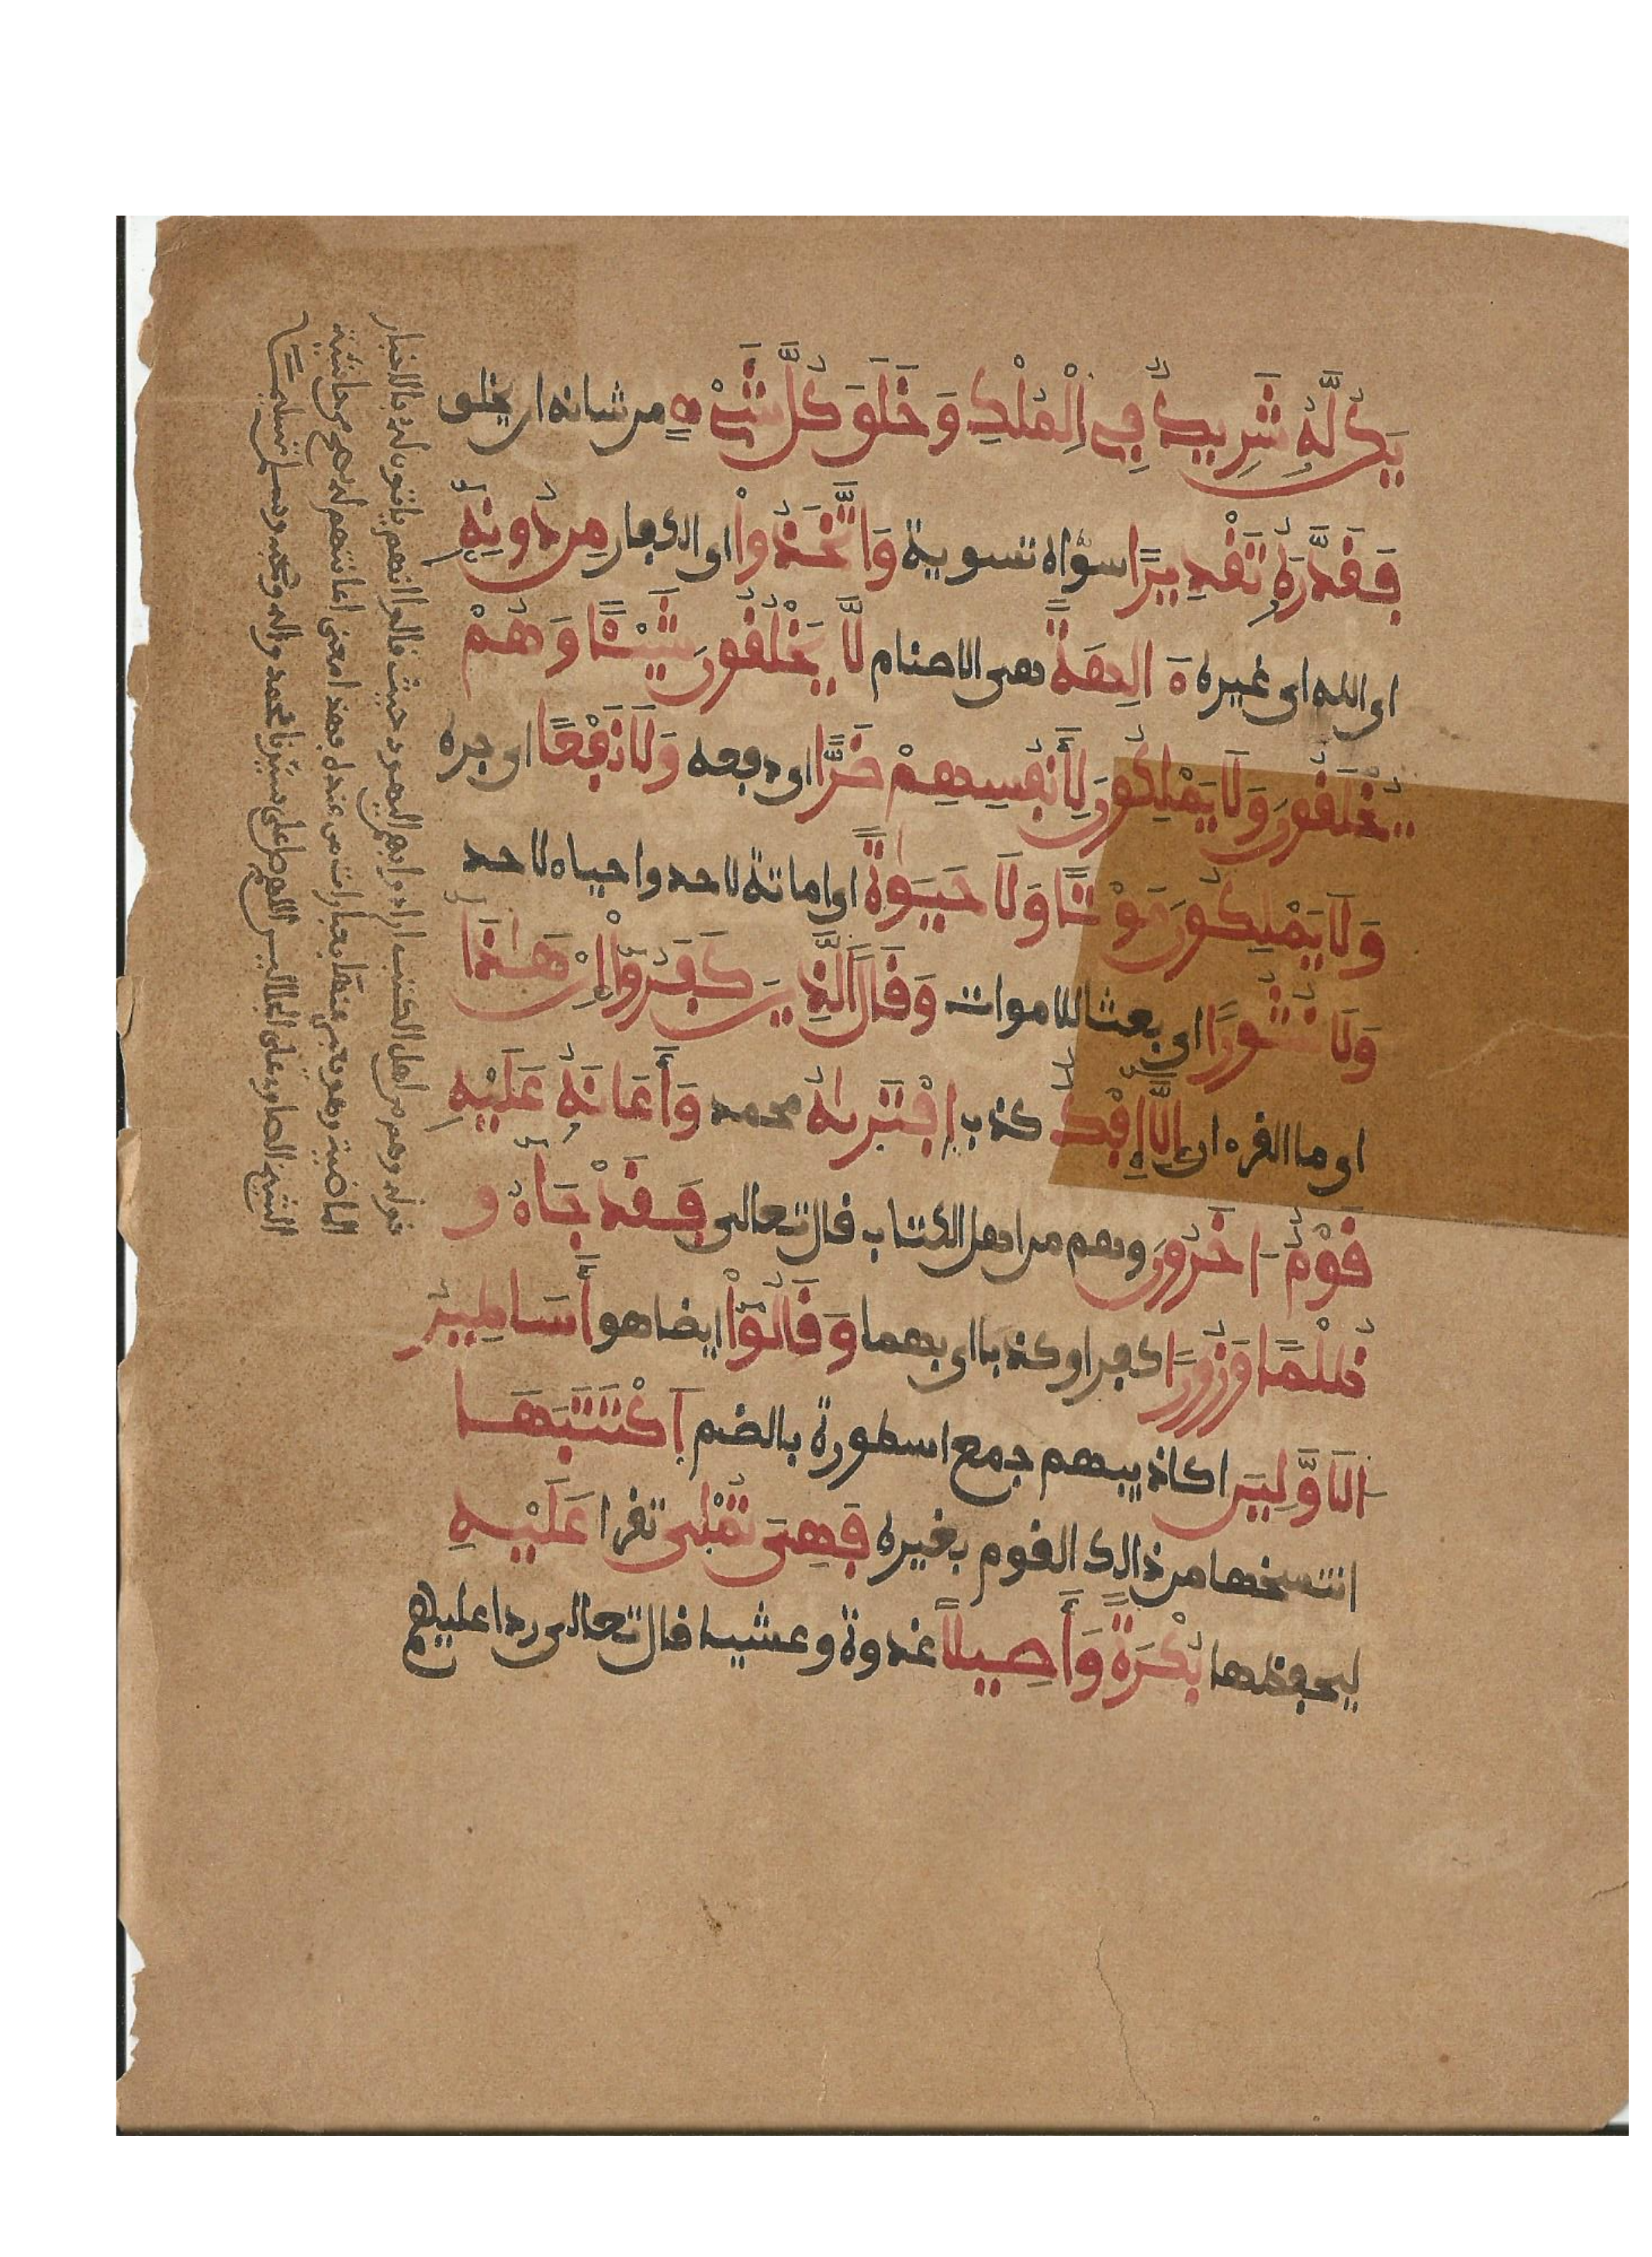 يَكُن لَّهُ شَرِيكٌ فِي اِلْمُلْكِ وَخَلَقَ كُلَّ شَيْءٍ من شانه ان يخلق
فَقَدَّرَهُ تَقْدِيرًا سواه تسوية وَاتَّخَذُواْ اي الكفار مِن دُونِهِ
اي الله اي غيره ءَالِهَةً هي الاصنام لَّا يَخْلُقُونَ شَيْـًٔا وَهُمْ
يُخْلَقُونَ وَلَا يَمْلِكُونَ لِأَنفُسِهِمْ ضَرًّا اي دفعه وَلَا نَفْعًا اي جره
وَلَا يَمْلِكُونَ مَوْتًا وَلَا حَيَوٰةً اي اماتة لاحد واحياء لاحد
وَلَا نُشُورًا اي بعثا للاموات وَقَالَ اَلَّذِينَ كَفَرُوٓاْ إِنْ هَـٰذَا
اي ما القرءان إِلَّآ إِفْكٌ كذب اِفْتَرَىٰهُ محمد وَأَعَانَهُ عَلَيْهِ
قَوْمٌ ـاخَرُونَ وهم من اهل الكتاب قال تعالى فَقَدْ جَآءُو
ظُلْمًا وَزُورًا كفرا وكذبا اي بهما وَقَالُوٓاْ ايضا هو أَسَاطِيرُ
اَلَاوَّلِينَ اكاذيبهم جمع اسطورة بالضم اَكْتَتَبَهَا
انتسخها من ذالك القوم بغيره فَهِيَ تُمْلَىٰ تقرا عَلَيْهِ
ليحفظها بُكْرَةً وَأَصِيلًا غدوة وعشيا قال تعالى ردا عليهم
قوله وهم من اهل الكتب اراد بهم اليهود حيث قالوا انهم ياتون له بالاخبار
الماضية وهو يعبر عنها بعبارات من عنده فهذا معنى اعانتهم له من حاشية
الشيخ الصاوي على الجلالين اللهم صل على سيدنا محمد واله وصحبه وسلم تسليما